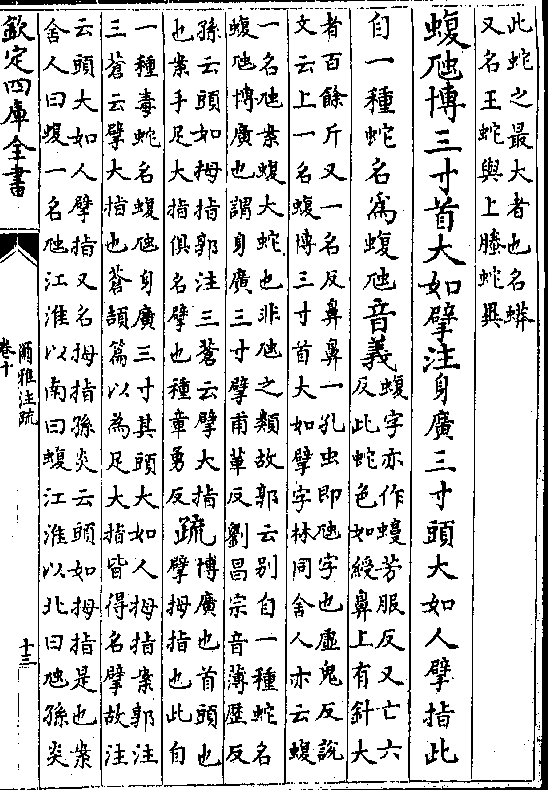 此蛇之最大者也名蟒
又名王蛇與上螣蛇異
蝮虺博三寸首大如擘注身廣三寸頭大如人擘指此
自一種蛇名為蝮虺音義
蝮字亦作蝮芳服反又亡六
反此蛇色如綬鼻上有針大
者百餘斤又一名反鼻鼻一孔虫即虺字也虛鬼反説
文云上一名蝮博三寸首大如擘字林同舍人亦云蝮
一名虺案蝮大蛇也非虺之類故郭云别自一種蛇名
蝮虺博廣也謂身廣三寸擘甫革反劉昌宗音薄歷反
孫云頭如拇指郭注三蒼云擘大指
也案手足大指俱名擘也種章勇反
疏
博廣也首頭也
擘拇指也此自
一種毒蛇名蝮虺身廣三寸其頭大如人拇指案郭注
三蒼云擘大指也蒼頡篇以為足大指皆得名擘故注
云頭大如人擘指又名拇指孫炎云頭如拇指是也案
舍人曰蝮一名虺江淮以南曰蝮江淮以北曰虺孫炎
欽定四庫全書
爾雅注疏
卷十
十三